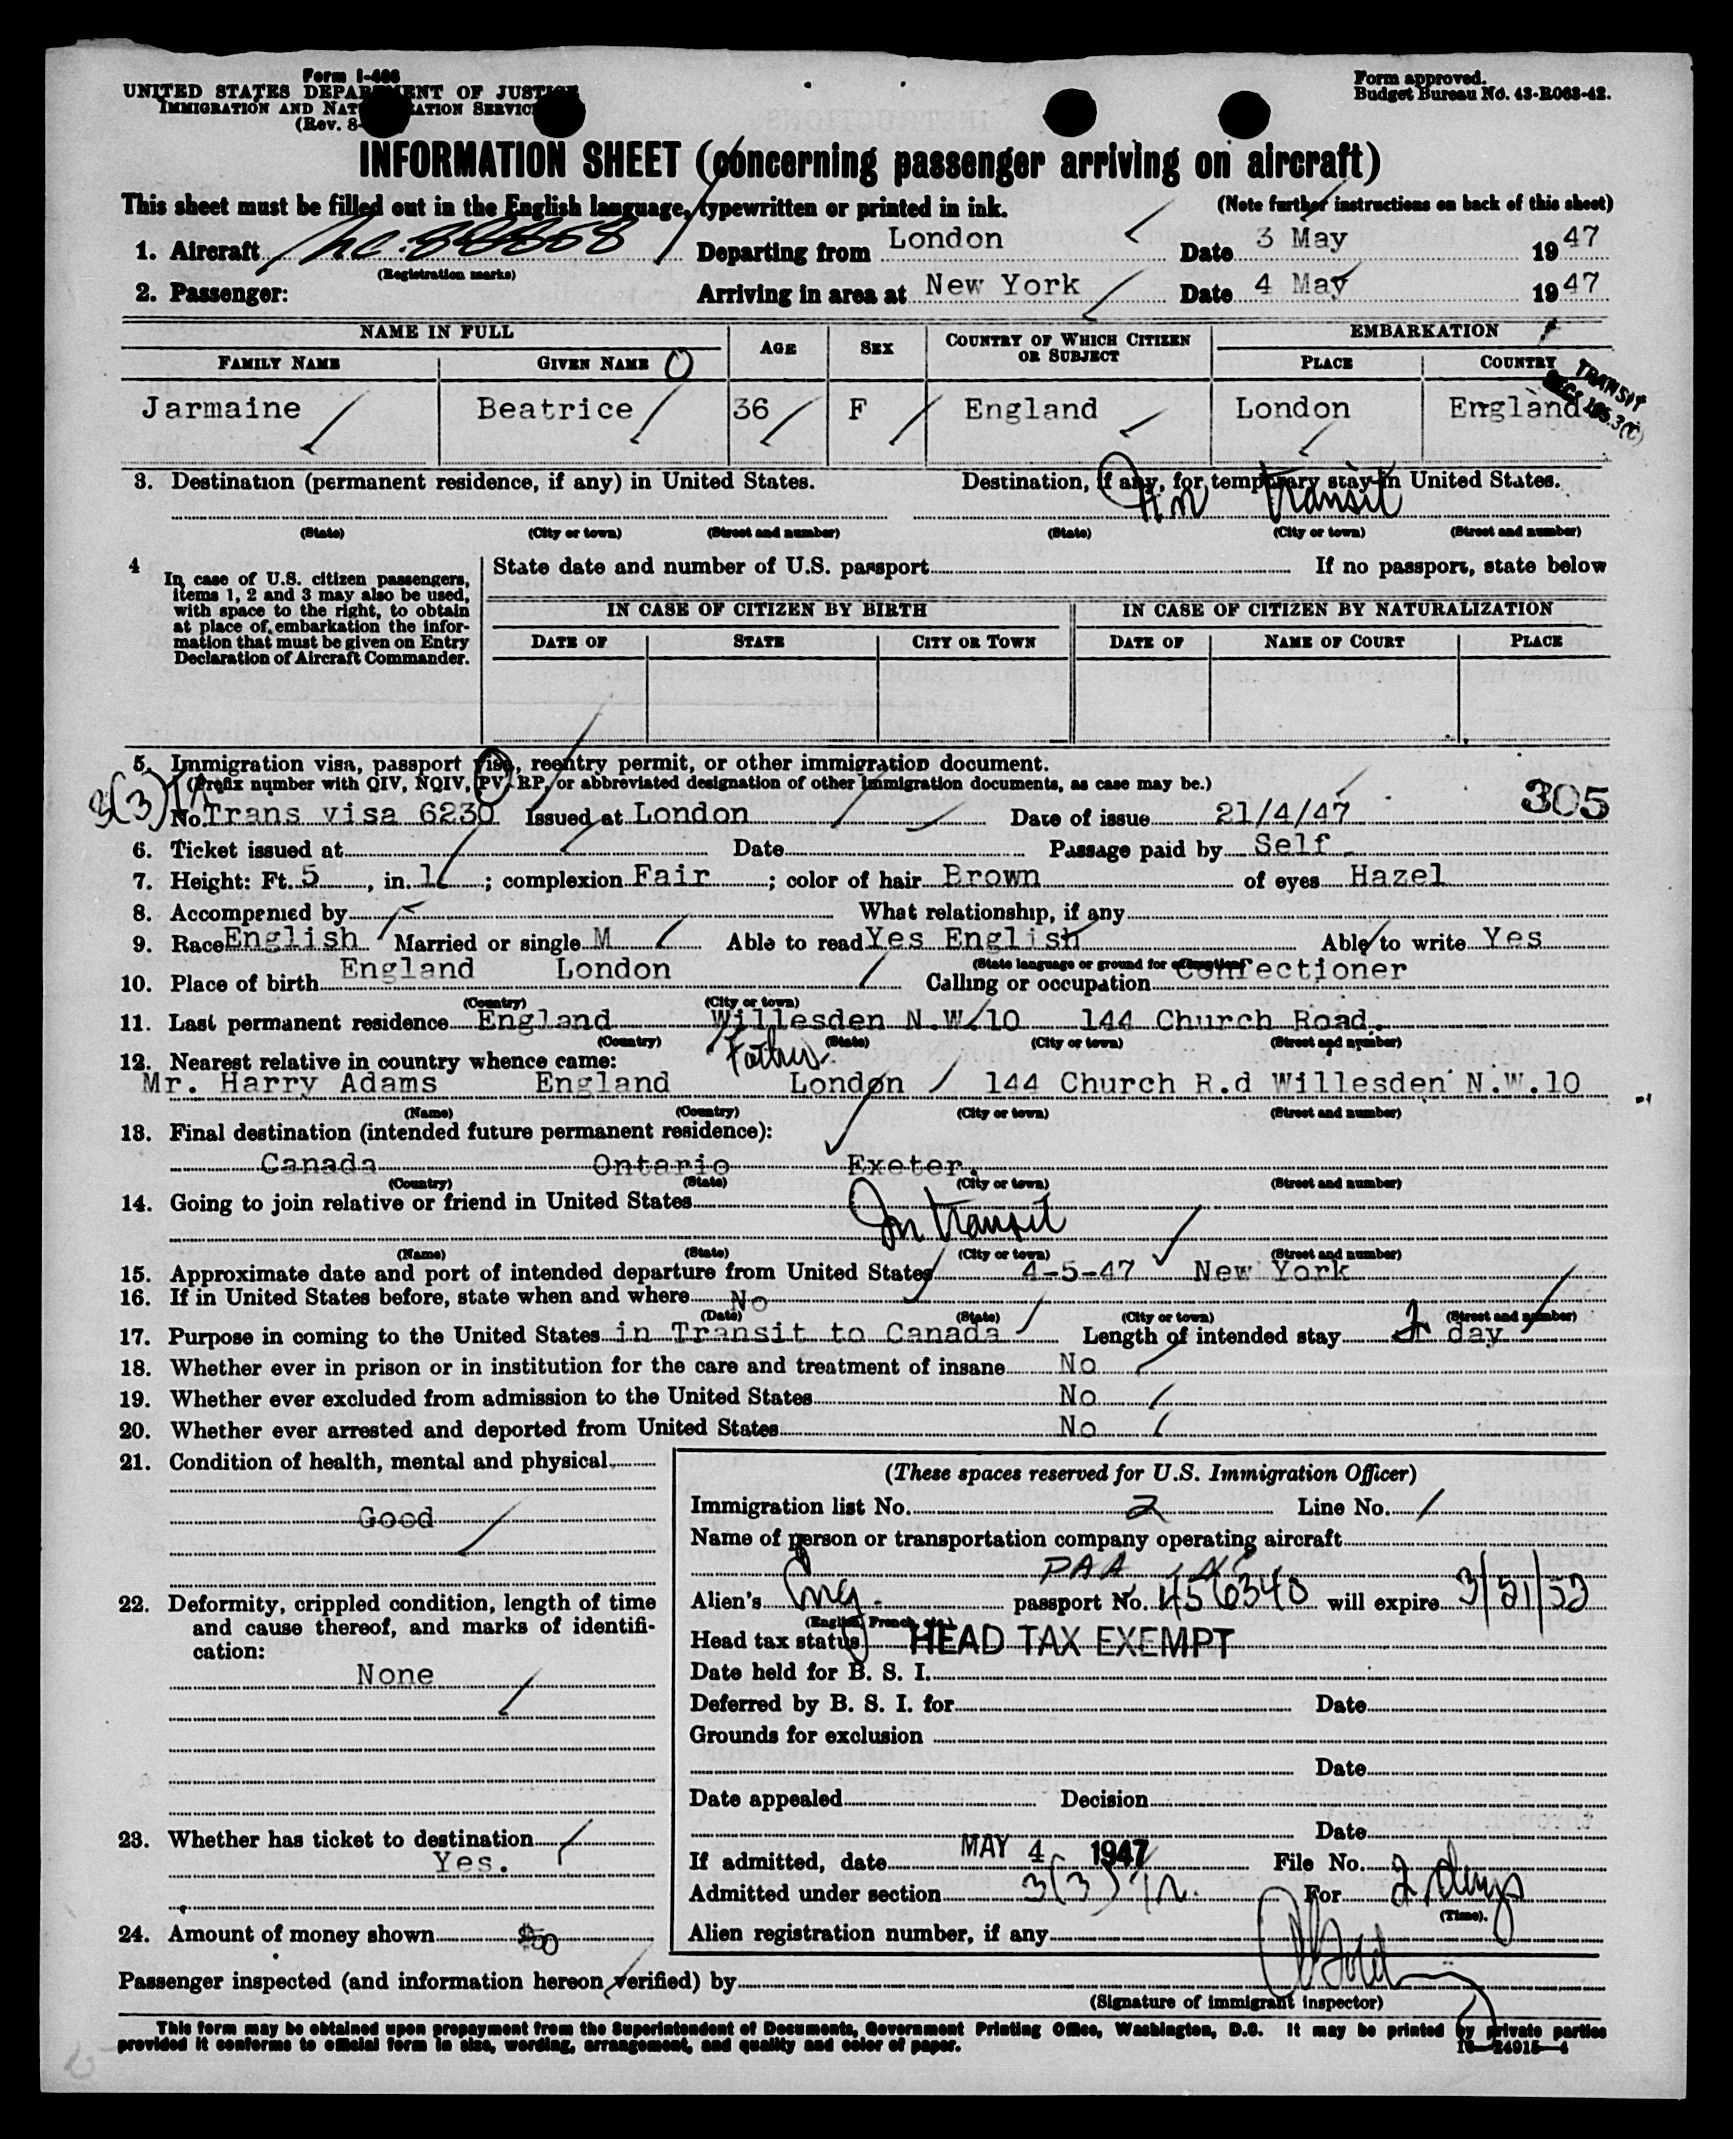 Form I-466
UNITED STATES DEPARTMENT OF JUSTICE
IMMIGRATION AND NATURALIZATION SERVICE
(Rev. 8-
Form approved.
Budget Bureau No. 43-R063-42.
INFORMATION SHEET (concerning passenger arriving on aircraft)
This sheet must be filled out in the English language, typewritten or printed in ink. (Note further instructions on back of this sheet)
1. Aircraft NC 88858 Departing from London Date 3 May 1947
(Registration marks)
2. Passenger: Arriving in area at New York Date 4 May 1947
NAME IN FULL AGE SEX COUNTRY OF WHICH CITIZEN OR SUBJECT EMBARKATION
FAMILY NAME GIVEN NAME PLACE COUNTRY
TRANSIT
Jarmaine Beatrice 36 F England London England
3. Destination (permanent residence, if any) in United States. Destination, if any, for temporary stay in United States.
In transit
(State) (City or town) (Street and number) (State) (City or town) (Street and number)
4 In case of U.S. citizen passengers, items 1, 2 and 3 may also be used, with space to the right, to obtain at place of embarkation the information that must be given on Entry Declaration of Aircraft Commander.
State date and number of U.S. passport If no passport, state below
IN CASE OF CITIZEN BY BIRTH IN CASE OF CITIZEN BY NATURALIZATION
DATE OF STATE CITY OR TOWN DATE OF NAME OF COURT PLACE
5. Immigration visa, passport visa, reentry permit, or other immigration document.
(Prefix number with QIV, NQIV, PV, RP, or abbreviated designation of other immigration documents, as case may be.)
3(3) No. Trans visa 6230 Issued at London Date of issue 21/4/47 305
6. Ticket issued at Date Passage paid by Self
7. Height: Ft. 5, in. 1; complexion Fair; color of hair Brown of eyes Hazel
8. Accompanied by What relationship, if any
9. Race English Married or single M Able to read Yes English Able to write Yes
(State language or ground for exemption)
10. Place of birth England London Calling or occupation Confectioner
(Country) (City or town)
11. Last permanent residence England Willesden N.W.10 144 Church Road.
(Country) (State) (City or town) (Street and number)
12. Nearest relative in country whence came: Father
Mr. Harry Adams England London 144 Church R.d Willesden N.W.10
(Name) (Country) (City or town) (Street and number)
13. Final destination (intended future permanent residence):
Canada Ontario Exeter.
(Country) (State) (City or town) (Street and number)
14. Going to join relative or friend in United States
In transit
(Name) (State) (City or town) (Street and number)
15. Approximate date and port of intended departure from United States 4-5-47 New York
16. If in United States before, state when and where No
(Date) (State) (City or town) (Street and number)
17. Purpose in coming to the United States in Transit to Canada Length of intended stay 2 day
18. Whether ever in prison or in institution for the care and treatment of insane No
19. Whether ever excluded from admission to the United States No
20. Whether ever arrested and deported from United States No
21. Condition of health, mental and physical
Good
22. Deformity, crippled condition, length of time
and cause thereof, and marks of identifi-
cation:
None
23. Whether has ticket to destination
Yes.
24. Amount of money shown $50
(These spaces reserved for U.S. Immigration Officer)
Immigration list No. 2 Line No. 1
Name of person or transportation company operating aircraft
PAA
Alien's Eng. passport No. 456340 will expire 3/21/52
(English, French, etc.)
Head tax status HEAD TAX EXEMPT
Date held for B. S. I.
Deferred by B. S. I. for Date
Grounds for exclusion
Date
Date appealed Decision
Date
If admitted, date MAY 4 1947 File No.
Admitted under section 3(3) For 2 days
(Time).
Alien registration number, if any
Passenger inspected (and information hereon verified) by
(Signature of immigrant inspector)
This form may be obtained upon prepayment from the Superintendent of Documents, Government Printing Office, Washington, D.C. It may be printed by private parties
provided it conforms to official form in size, wording, arrangement, and quality and color of paper. 16—24915-4